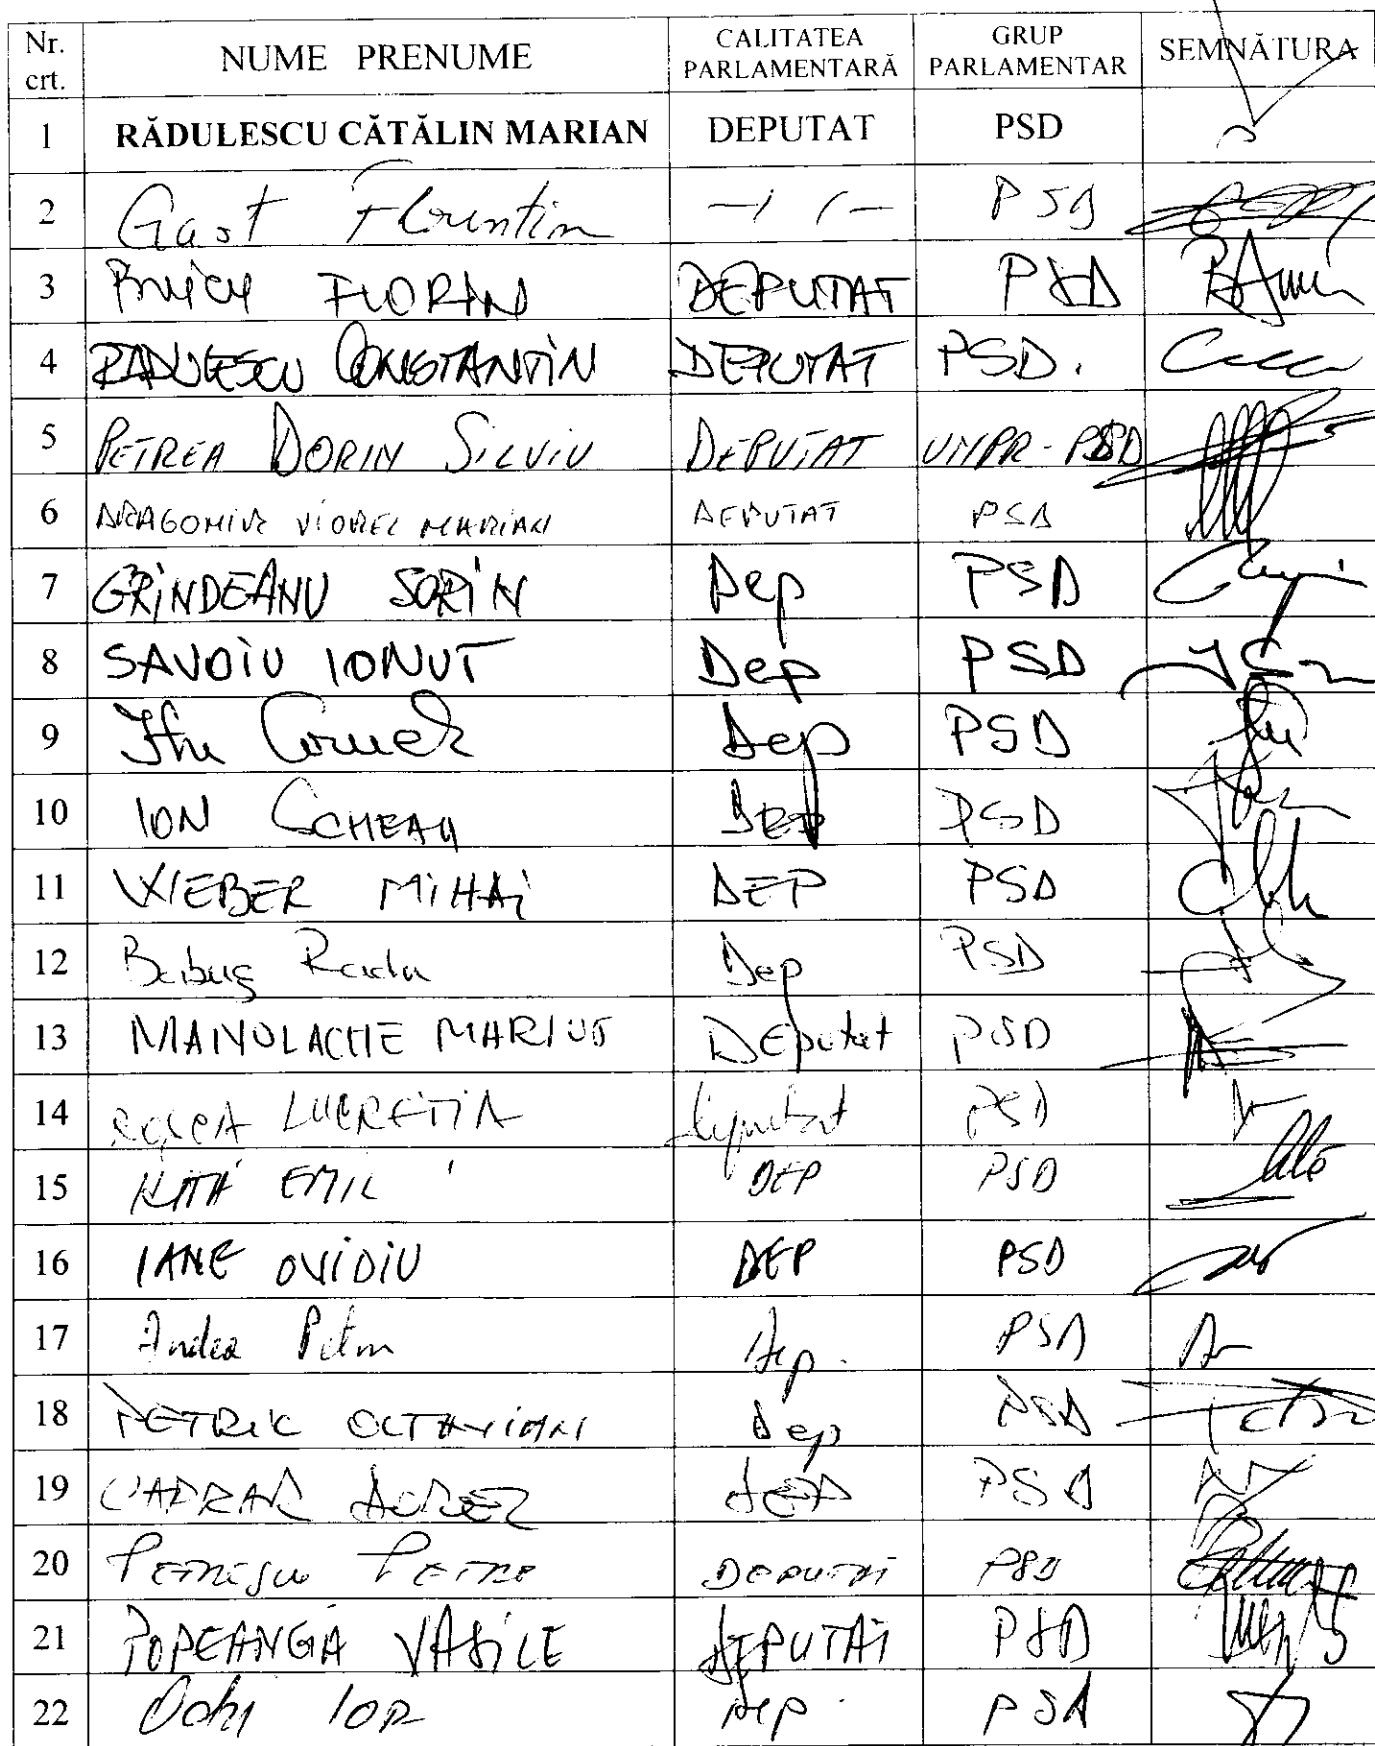 Nr. crt. NUME PRENUME CALITATEA PARLAMENTARĂ GRUP PARLAMENTAR SEMNĂTURA
1 RĂDULESCU CĂTĂLIN MARIAN DEPUTAT PSD
2 Gust Florentin —//— PSD
3 Buicu FLORIN DEPUTAT PSD
4 RADULESCU CONSTANTIN DEPUTAT PSD.
5 PETREA DORIN SILVIU DEPUTAT UNPR-PSD
6 DRAGOMIR VIOREL MARIAN DEPUTAT PSD
7 GRiNDEANU SORiN Dep PSD
8 SAVOiU IONUT Dep PSD
9 Itu Cornel Dep PSD
10 ION OCHEAN DEP PSD
11 WEBER MiHAi DEP PSD
12 Babuş Radu Dep PSD
13 MANOLACHE MARIUS DEputat PSD
14 ROŞCA LUCREŢIA deputat PSD
15 NIŢĂ EMIL DEP PSD
16 IANE OViDiU DEP PSD
17 Andea Petru Dep. PSD
18 PETRIC OCTAVIAN Dep PSD
19 VADRAR AUREL DEP PSD
20 PETRESCU PETRE DEPUTAT PSD
21 POPEANGĂ VASiLE DEPUTAT PSD
22 Ochi ION Dep. PSD